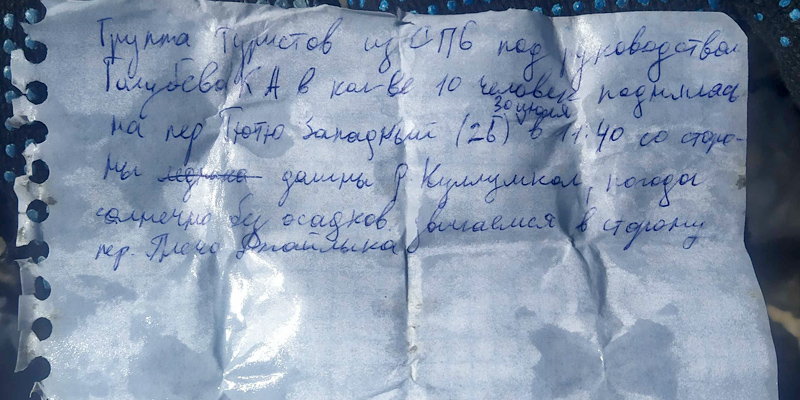 Группа туристов из СПб под руководством
Голубева КА в кол-ве 10 человек поднялась
30 июня
на пер Тютю Западный (2Б) в 11:40 со сторо-
ны долины р Куллумкол, погода
солнечно без осадков. двигаемся в сторону
пер. Плечо Джайлыка